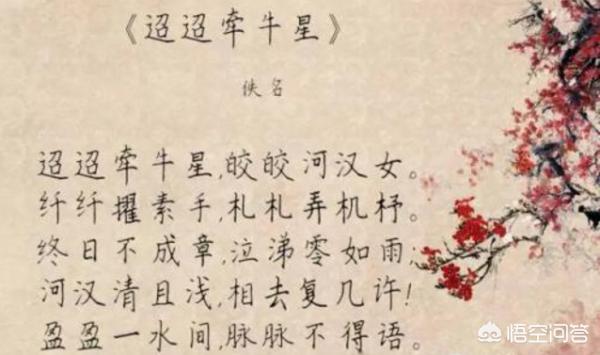 《迢迢牵牛星》
佚名
迢迢牵牛星,皎皎河汉女。
纤纤擢素手,札札弄机杼。
终日不成章,泣涕零如雨;
河汉清且浅,相去复几许!
盈盈一水间,脉脉不得语。
悟空问答